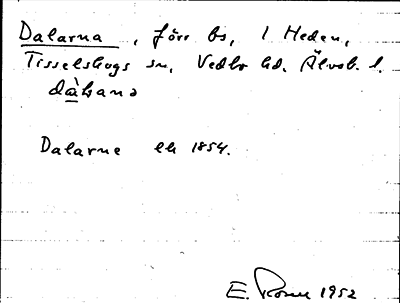 Dalarna, förr bs, 1 Heden,
Tisselskogs sn, Vedbo hd. Älvsb. l.
Dalarne lh 1854.
E. 1952